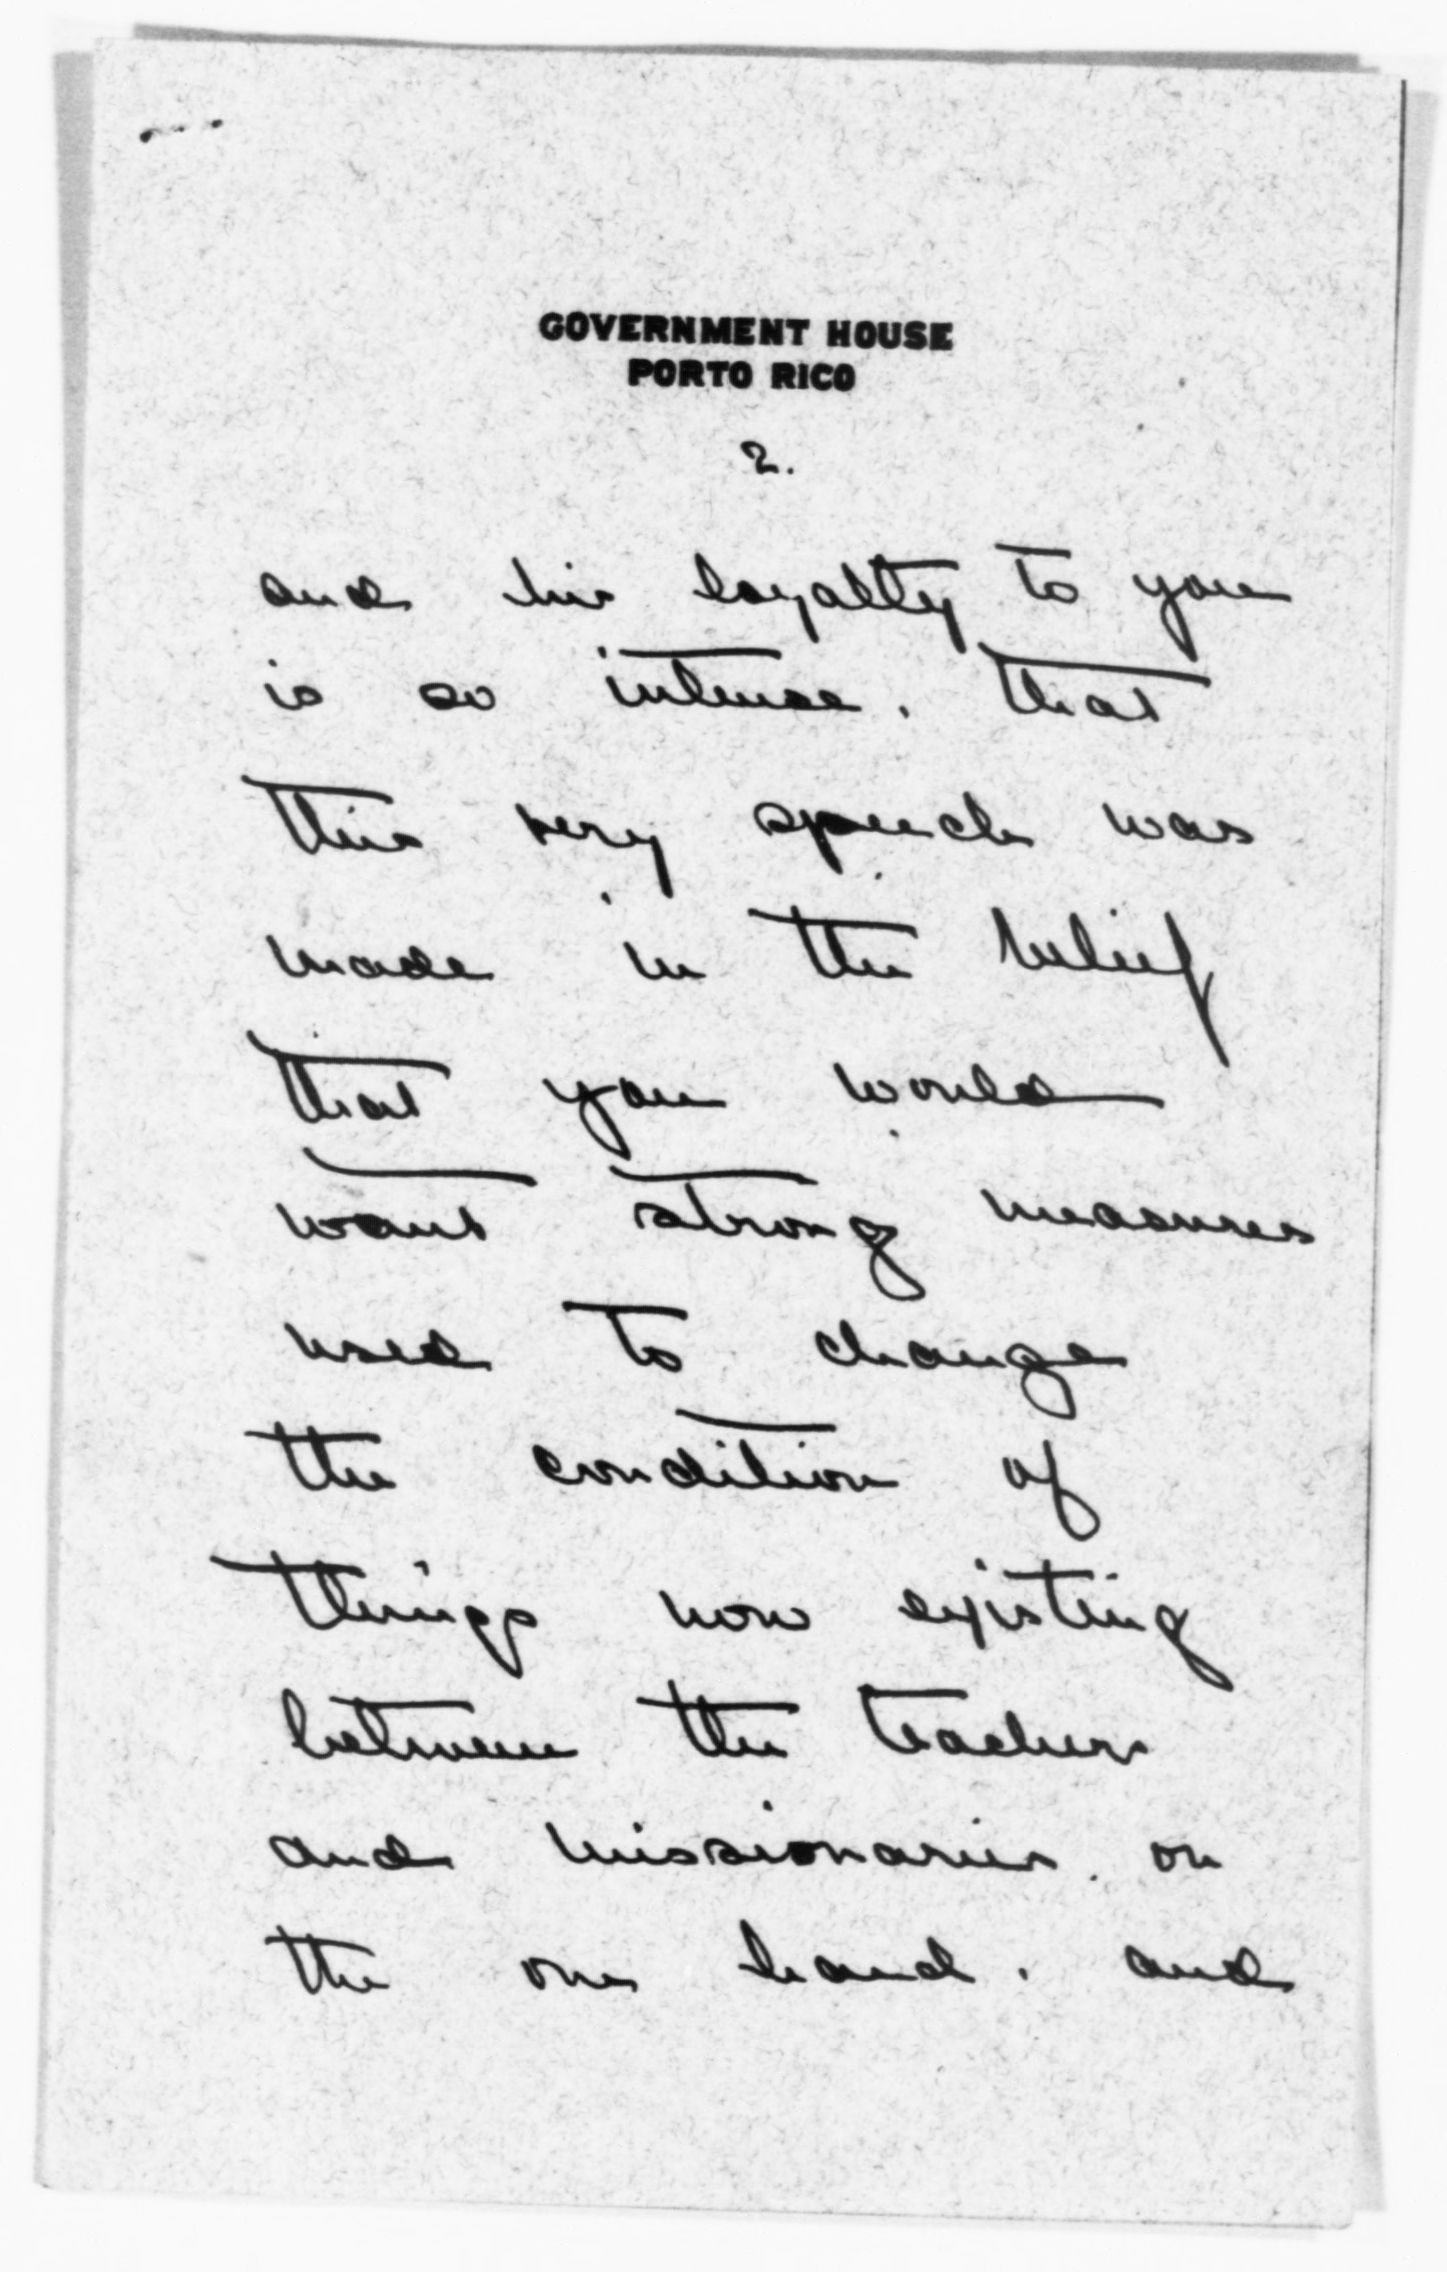 GOVERNMENT HOUSE
PORTO RICO
2.
and his loyalty to you
is so intense, that
this very speech was
made in the belief
that you would
want strong measures
used to change
the condition of
things now existing
between the teachers
and missionaries, on
the one hand, and